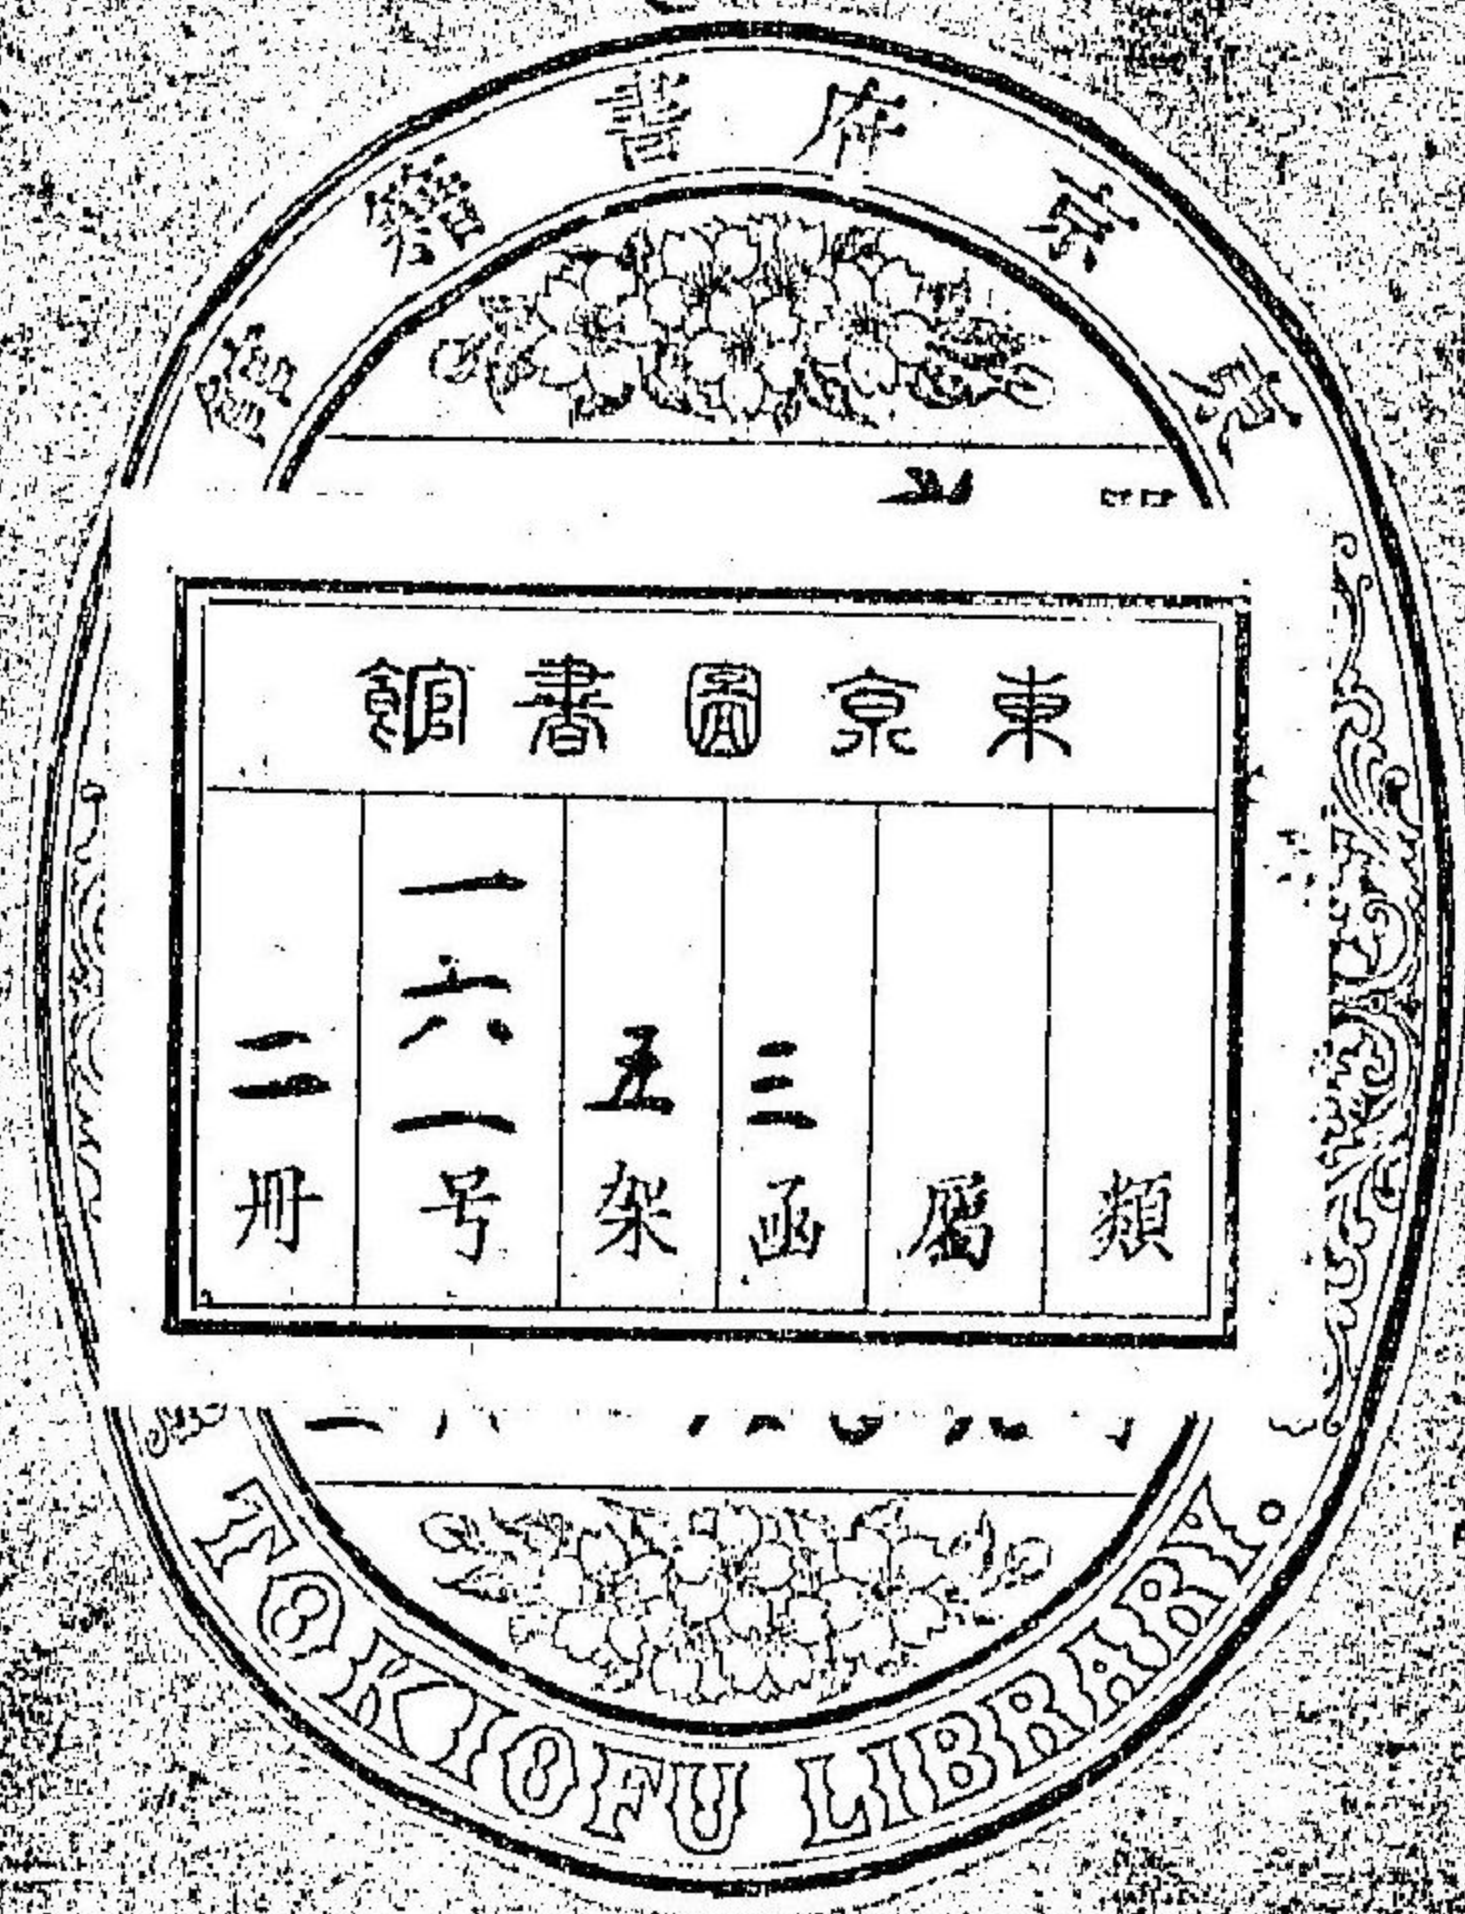 東京府書籍館
東京圖書館
類
屬
三函
五架
一六一号
二冊
TOKIOFU LIBRARY.